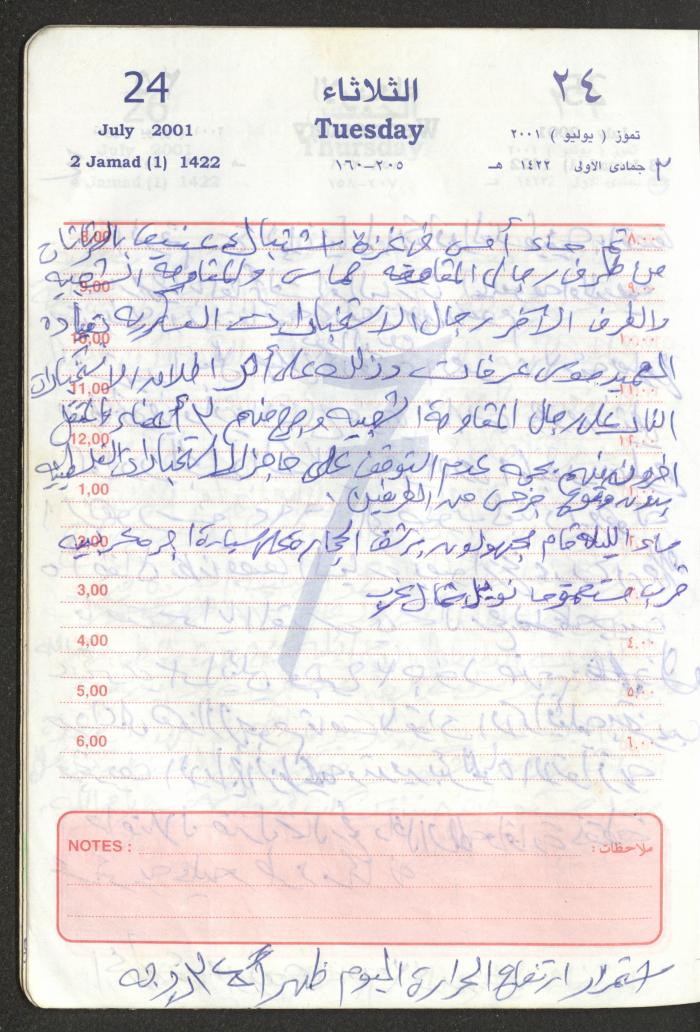 24 الثلاثاء ٢٤
July 2001 Tuesday تموز ( يوليو ) ٢٠٠١
2 Jamad (1) 1422 ١٦٠-٢٠٥ ٢ جمادى الاولى ١٤٢٢ هـ
8,00 ٨,٠٠
تم مساء أمس في غزة اشتباك عنيف بالرشاش
من طرف رجال المقاومة حماس والمقاومة الشعبية
9,00 ٩,٠٠
والطرف الآخر رجال الاستخبارات العسكرية بقيادة
10,00 ١٠,٠٠
العميد موسى عرفات وذلك على أثر اطلاق الاستخبارات
11,00 ١١,٠٠
النار على رجال المقاومة الشعبية وجرح منهم ٣ أعضاء
12,00 ١٢,٠٠
اخرون منهم بحجة عدم التوقف على حاجز الاستخبارات الفلسطينية
1,00
بدون وقوع جرحى من الطرفين .
مساء الليلة قام مجهولون برشق الحجارة سيارة
2,00 ٢,٠٠
قرب شمال غرب
3,00
4,00 ٤,٠٠
5,00 ٥,٠٠
6,00 ٦,٠٠
NOTES : ملاحظات :
استمرار ارتفاع الحرارة اليوم ظهراً درجة